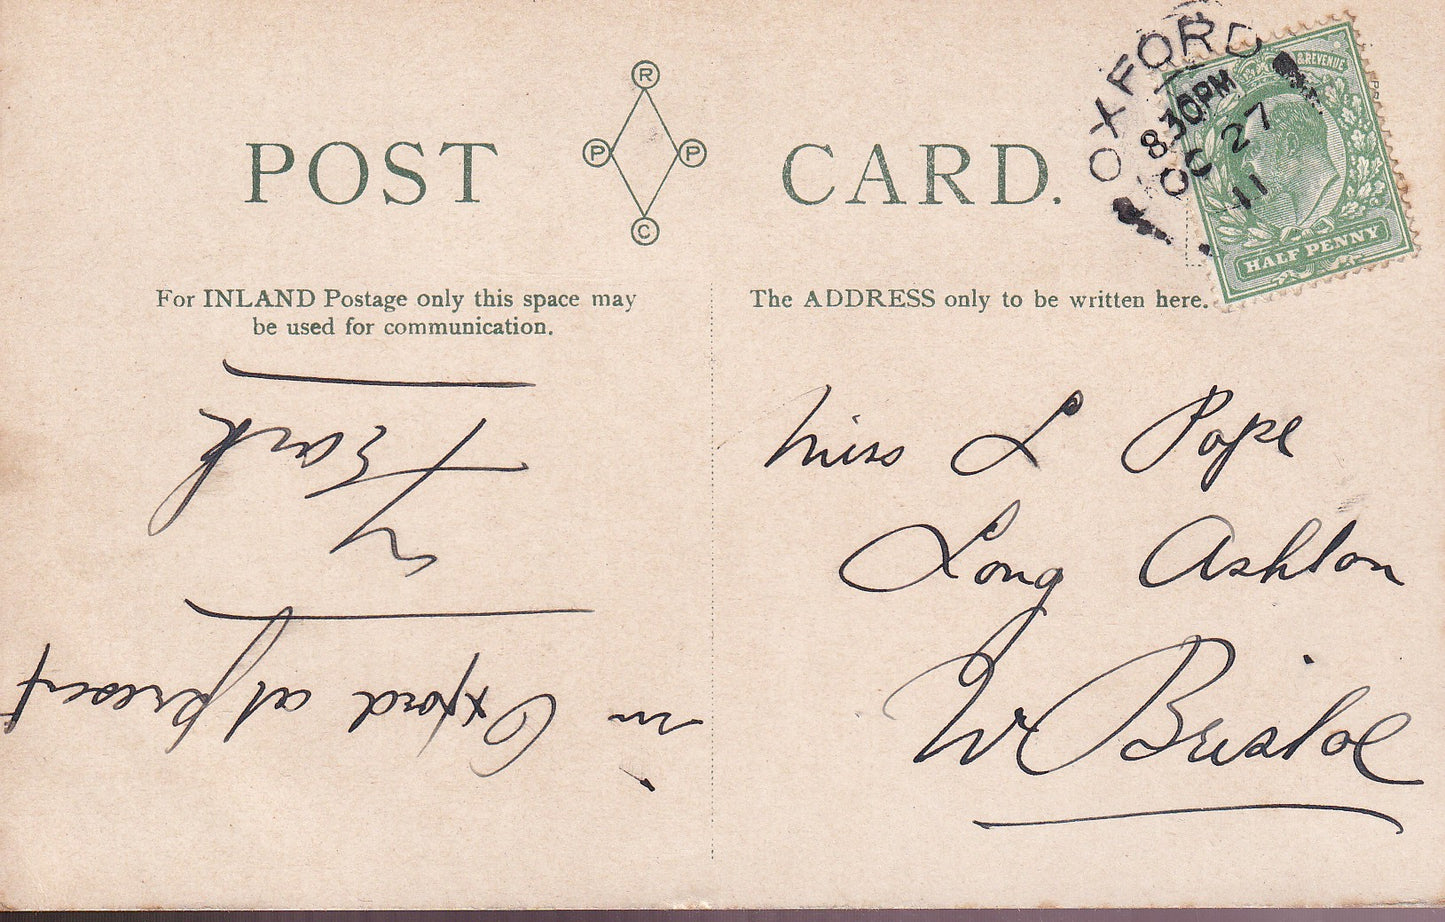 POST CARD.
R
P P
C
OXFORD
8 30PM
OC 27
11
& REVENUE
HALF PENNY
For INLAND Postage only this space may
be used for communication.
The ADDRESS only to be written here.
Miss L Pope
Long Ashton
Nr Bristol
in Oxford at present